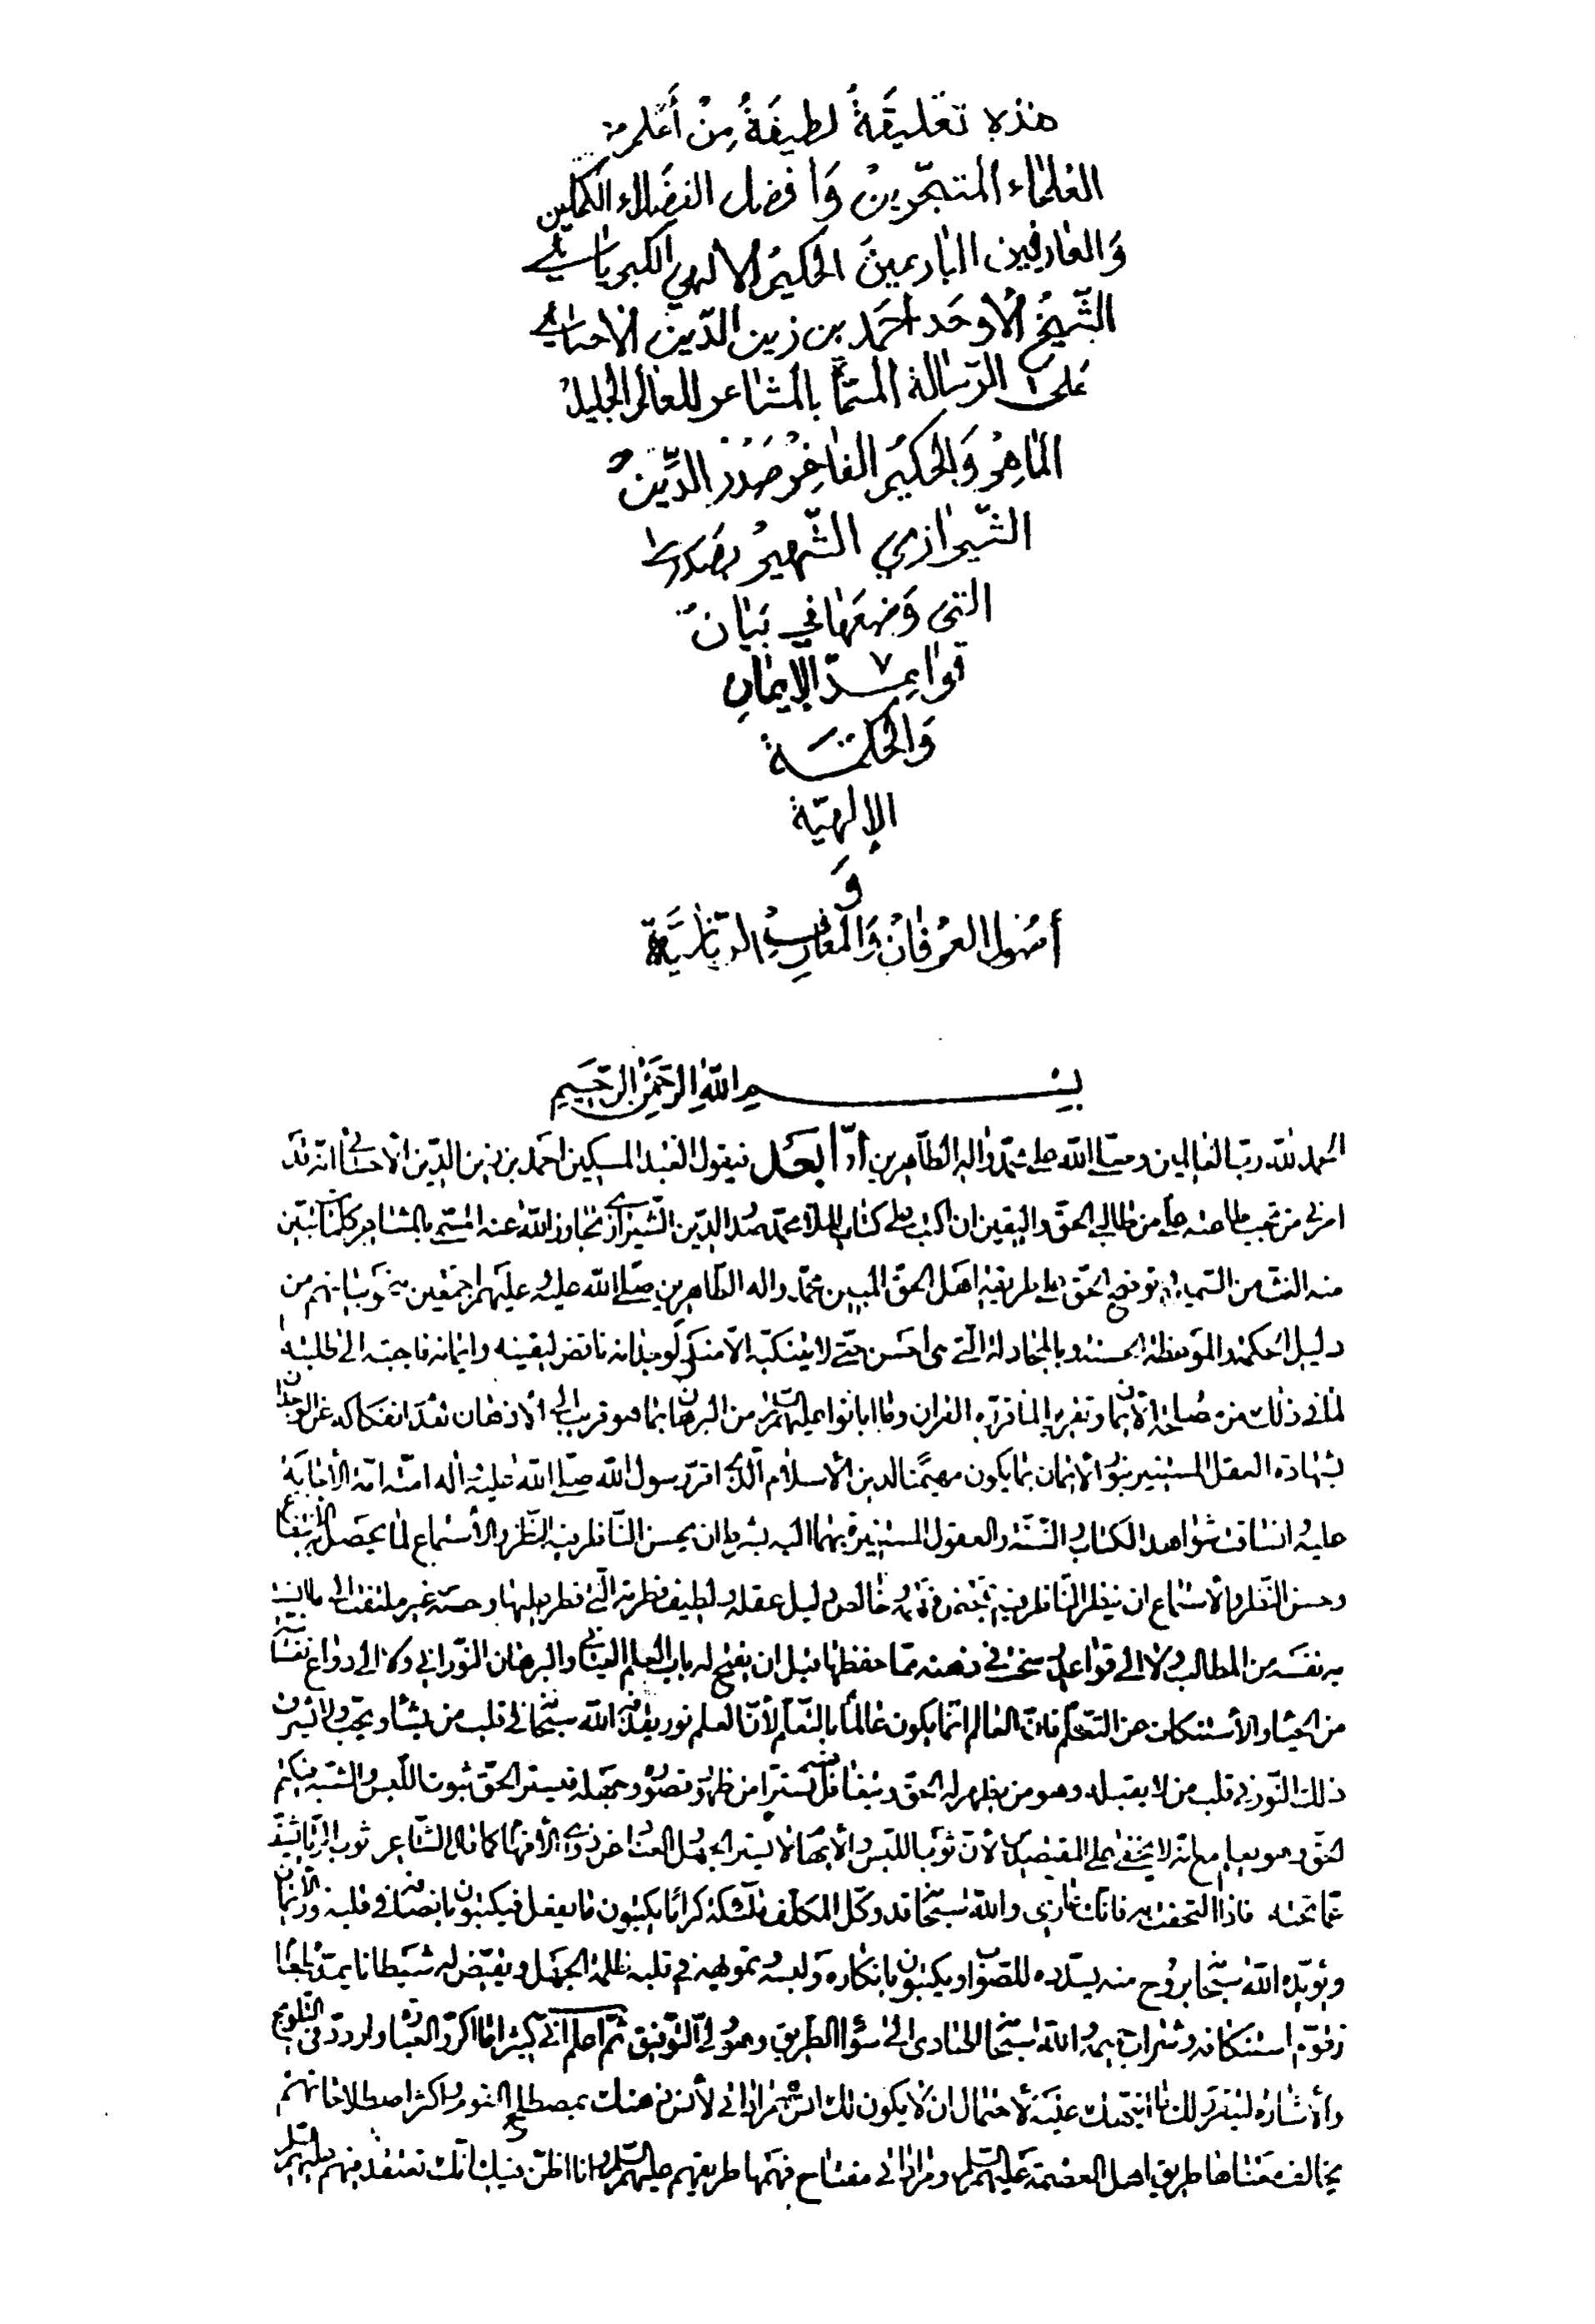 هذه تعليقة لطيفة من أعلم
العلماء المتبحرين وافضل الفضلاء الكملين
والعارفين البارعين الحكيم الالهي الكبريائي
الشيخ الأوحد احمد بن زين الدين الاحسائي
على الرسالة المسماة بالمشاعر للعالم الجليل
الماهر والحكيم الفاخر صدر الدين
الشيرازي الشهير بصدرا
التى وضعها في بيان
قواعد الإيمان
والحكمة
الإلهية
و
أصول العرفان والمعارف الربانية
بسم الله الرحمن الرحيم
الحمد لله رب العالمين وصلى الله على محمد واله الطاهرين أما بعد فيقول العبد المسكين احمد بن زين الدين الاحسائي انه قد
امرني من تجب طاعته علي من طالبي الحق واليقين ان اكتب على كتاب الملا محمد صدر الدين الشيرازي تجاوز الله عنه المسمى بالمشاعر كلمات تبين
منه الغث من السمين وتوضح الحق على طريقة اهل الحق المبين محمد واله الطاهرين صلى الله عليه وعليهم اجمعين بنحو بيانهم من
دليل الحكمة والموعظة الحسنة وبالمجادلة التي هى احسن حتى لا يتنكبه الا منكر لوجدانه ناقض ليقينه وايمانه فاجبته الى طلبته
لما في ذلك من صلاح الايمان وتقرير لما قرره القران وما ابانوا عليهم السلام من البرهان بما هو قريب الى الاذهان بعد انفكاكه عن الوجدان
بشهادة العقل المستنير بنور الايمان بما يكون مهيمنا لدين الاسلام الذي اقر رسول الله صلى الله عليه واله امته امة الأجابة
عليه انساقت شواهد الكتاب والسنة والعقول المستنيرة بهما اليه بشرط ان يحسن الناظر فيه النظر والأستماع لما يحصل به الانتفاع
وحسن النظر والأستماع ان ينظر الناظر فيه بمحض فهمه وخالص دليل عقله ولطيف فطرته التي فطر عليها وحسه غير ملتفت الى ما انست
به نفسه من المطالب ولا الى قواعد رسخت في ذهنه مما حفظها قبل ان يفتح له باب العلم العياني والبرهان النوراني ولا الى دواع نفسانية
من الحياء والأستنكاف عن التعلم فان العالم انما يكون عالما بالتعلم لأن العلم نور يقذفه الله سبحانه في قلب من يشاء ويحب ولا يشرق
ذلك النور في قلب من لا يقبله وهو من يظهر له الحق ويتغافل تسترا من ظهور قصوره وجهله فيستر الحق بثوب اللبس والشبه فيكتم
الحق وهو يعلم مع انه لا يخفى على المتوسمين لأن ثوب اللبس والأبهام لا يستر الجهل العناد عن ذوي الأفهام كما قال الشاعر ثوب الرياء يشف
عما تحته فاذا التحفت به فانك عاري والله سبحانه قد وكل المكلف ملئكة كراما يكتبون ما يفعل فيكتبون بانصافه في قلبه نور الايمان
ويؤيده الله سبحانه بروح منه يسدده للصواب ويكتبون بانكاره ولبسه وتمويهه في قلبه ظلمة الجهل ويقيض له شيطانا
استنكافه والله سبحانه الهادى الى سواء الطريق وهو ولي التوفيق ثم اعلم اني كثيرا ما اكرر العبارة واردد في التلويح
والأشارة ليتقرر لك ما انبهك عليه لاحتمال ان لا يكون لك انس بمراداتي لأنس ذهنك بمصطلح القوم واكثر اصطلاحاتهم
يخالف معناها طريق اهل العصمة عليهم السلم ومراداتي مفتاح فهمها طريقهم عليهم السلم وانا اظن فيك انك تعتقد فيهم عليهم السلم